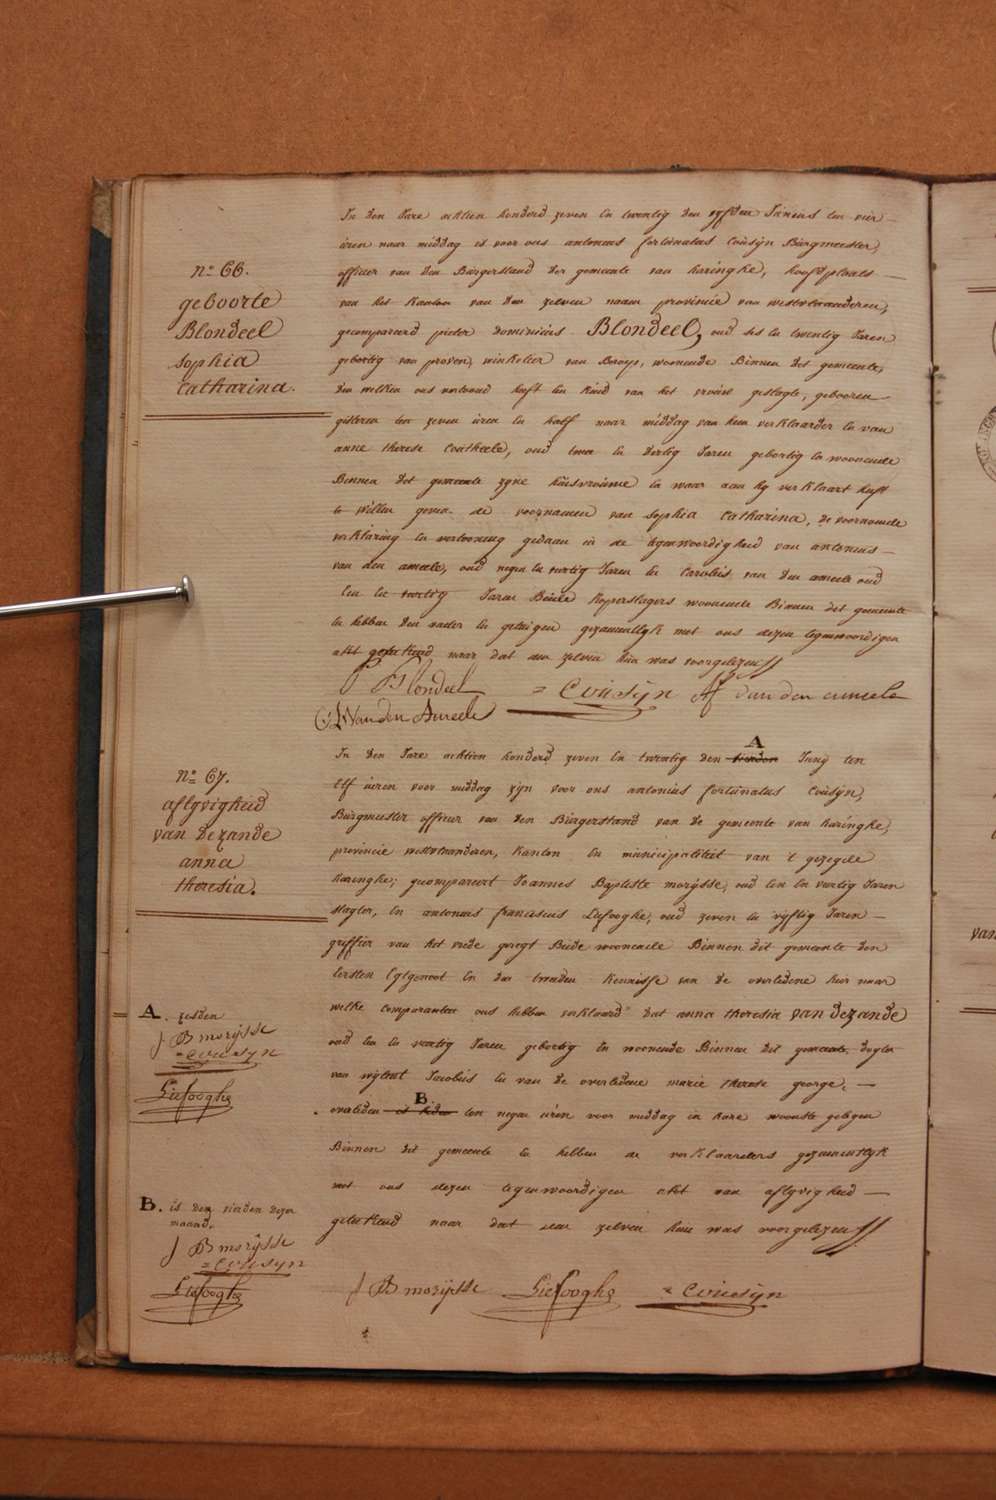 n.° 66.
geboorte
Blondeel
sophia
Catharina.
In den Jare achtien honderd zeven en twentig den vyfden Junius ten vier
uren naar middag is voor ons antonius fortunatus Coúsÿn Burgmeester,
officier van den Burgerstand der gemeente van haringhe, hooftplaats
van het kanton van den zelven naam provincie van westvlaanderen,
gecompareerd pieter dominicus Blondeel, oud ses en twentig Jaren
gebortig van proven, winkelier van Beroep, woonende Binnen det gemeente,
den welken ons vertoond heeft een kind van het vrouwe geslagte, gebooren
gisteren ten zeven uren en half naar middag van hem verklaarder en van
anne therese Coutheele, oud twee en dertig Jaren gebortig en woonende
Binnen det gemeente zyne huisvrouwe en waar aan hy verklaart heeft
te willen geven de voornamen van sophia Catharina, de voornoemde
verklaring en vertooning gedaan in de tegenwoordigheid van antonius
van den ameele, oud negen en vertig Jaren en Carolus van den ameele oud
een en vertig Jaren Beide koperslagers woonende Binnen det gemeente
en hebben den vader en getuigen gezamentlyk met ons dezen tegenwoordigen
akt geteekend naar dat aen zelven hun was voorgelezen
P Blondeel = Coúsÿn Af van den ameele
C. Van den Ameele
n.° 67.
aflyvigheid
van dezande
anna
theresia.
A
In den Jare achtien honderd zeven en twentig den vierden Juny ten
Elf uren voor middag zyn voor ons antonius fortunatus Coúsÿn,
Burgmeester officier van den Burgerstand van de gemeente van haringhe,
provincie westvlaanderen, kanton en municipaliteit van 't gezegde
haringhe; gecompareert Joannes Baptiste morÿsse, oud een en vertig Jaren
slagter, en antonius franciscus Liefooghe, oud zeven en vyftig Jaren
griffier van het vrede geregt Beide woonende Binnen dit gemeente den
eersten Eygenoot en den tweeden kennisse van de overledene hier naar
welke comparanten ons hebben verklaard dat anna theresia van dezande
oud een en veertig Jaren gebortig en woonende Binnen dit gemeente dogter
van wylent Jacobus en van de overledene marie therese george,
B
overleden is heden ten negen uren voor middag in hare wooning gelegen
Binnen dit gemeente en hebben de verklaarders gezamentlyk
met ons dezen tegenwoordigen akt van aflyvigheid
geteekend naar dat aen zelven hun was voorgelezen
A. zesden
J B morÿsse
= Coúsÿn
Liefooghe
B. is den vierden dezer
maand.
J B morÿsse
= Coúsÿn
Liefooghe
J B morÿsse Liefooghe = Coúsÿn